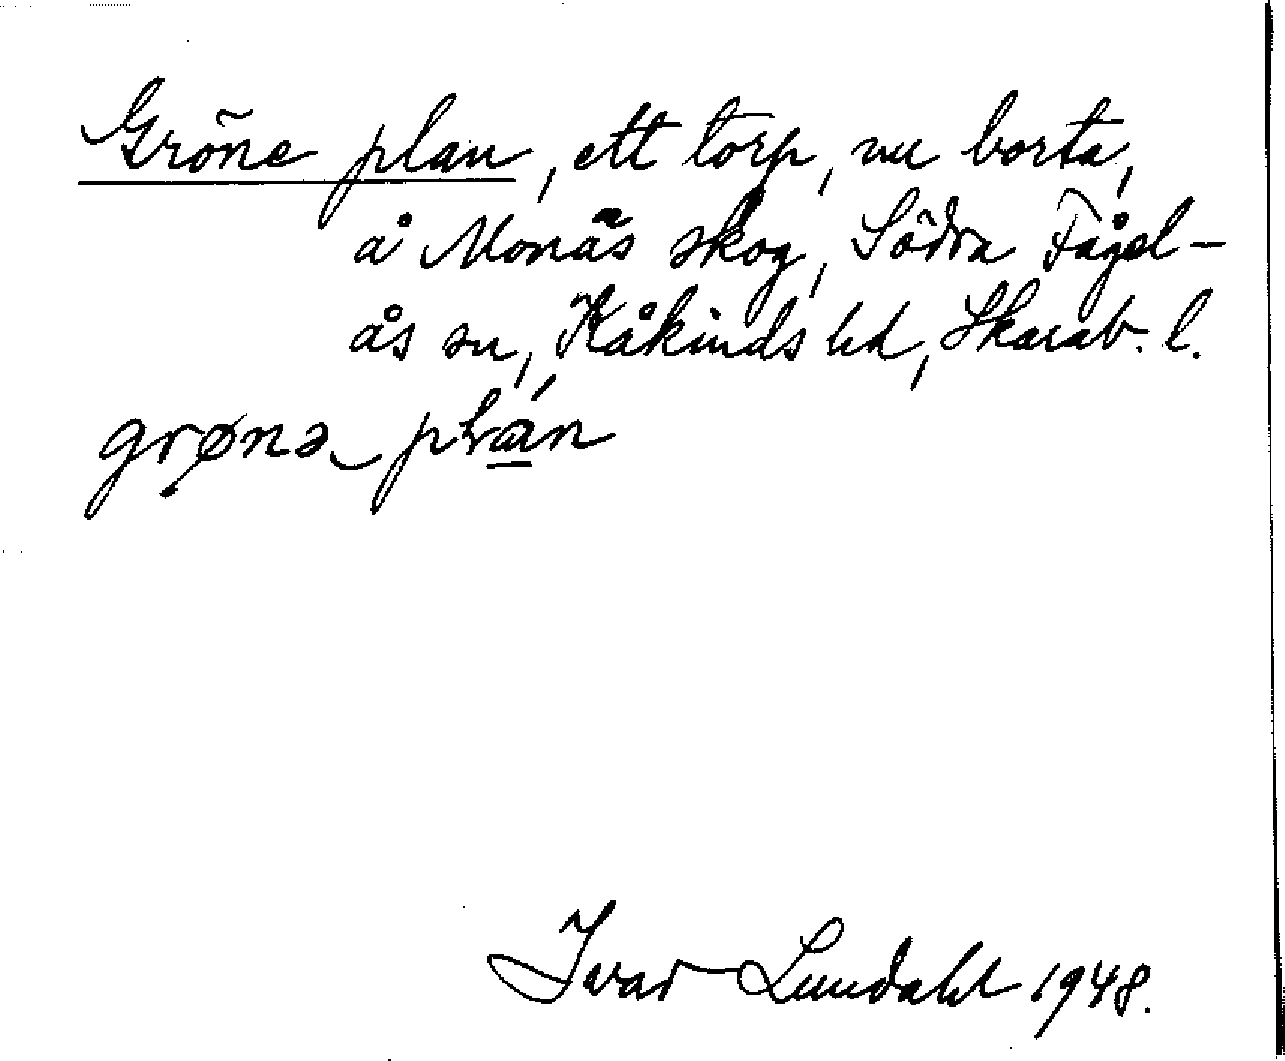 Gröne plan, ett torp, nu borta,
å Monäs skog, Södra Fågel-
ås sn, Kåkinds hd, Skarab. l.
grønə plán
Ivar Lundahl 1948.